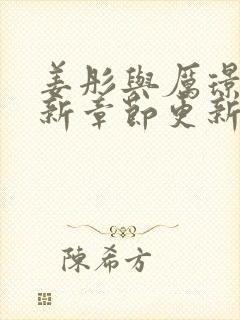 姜彤與厲璟
新章節更新
陳希方